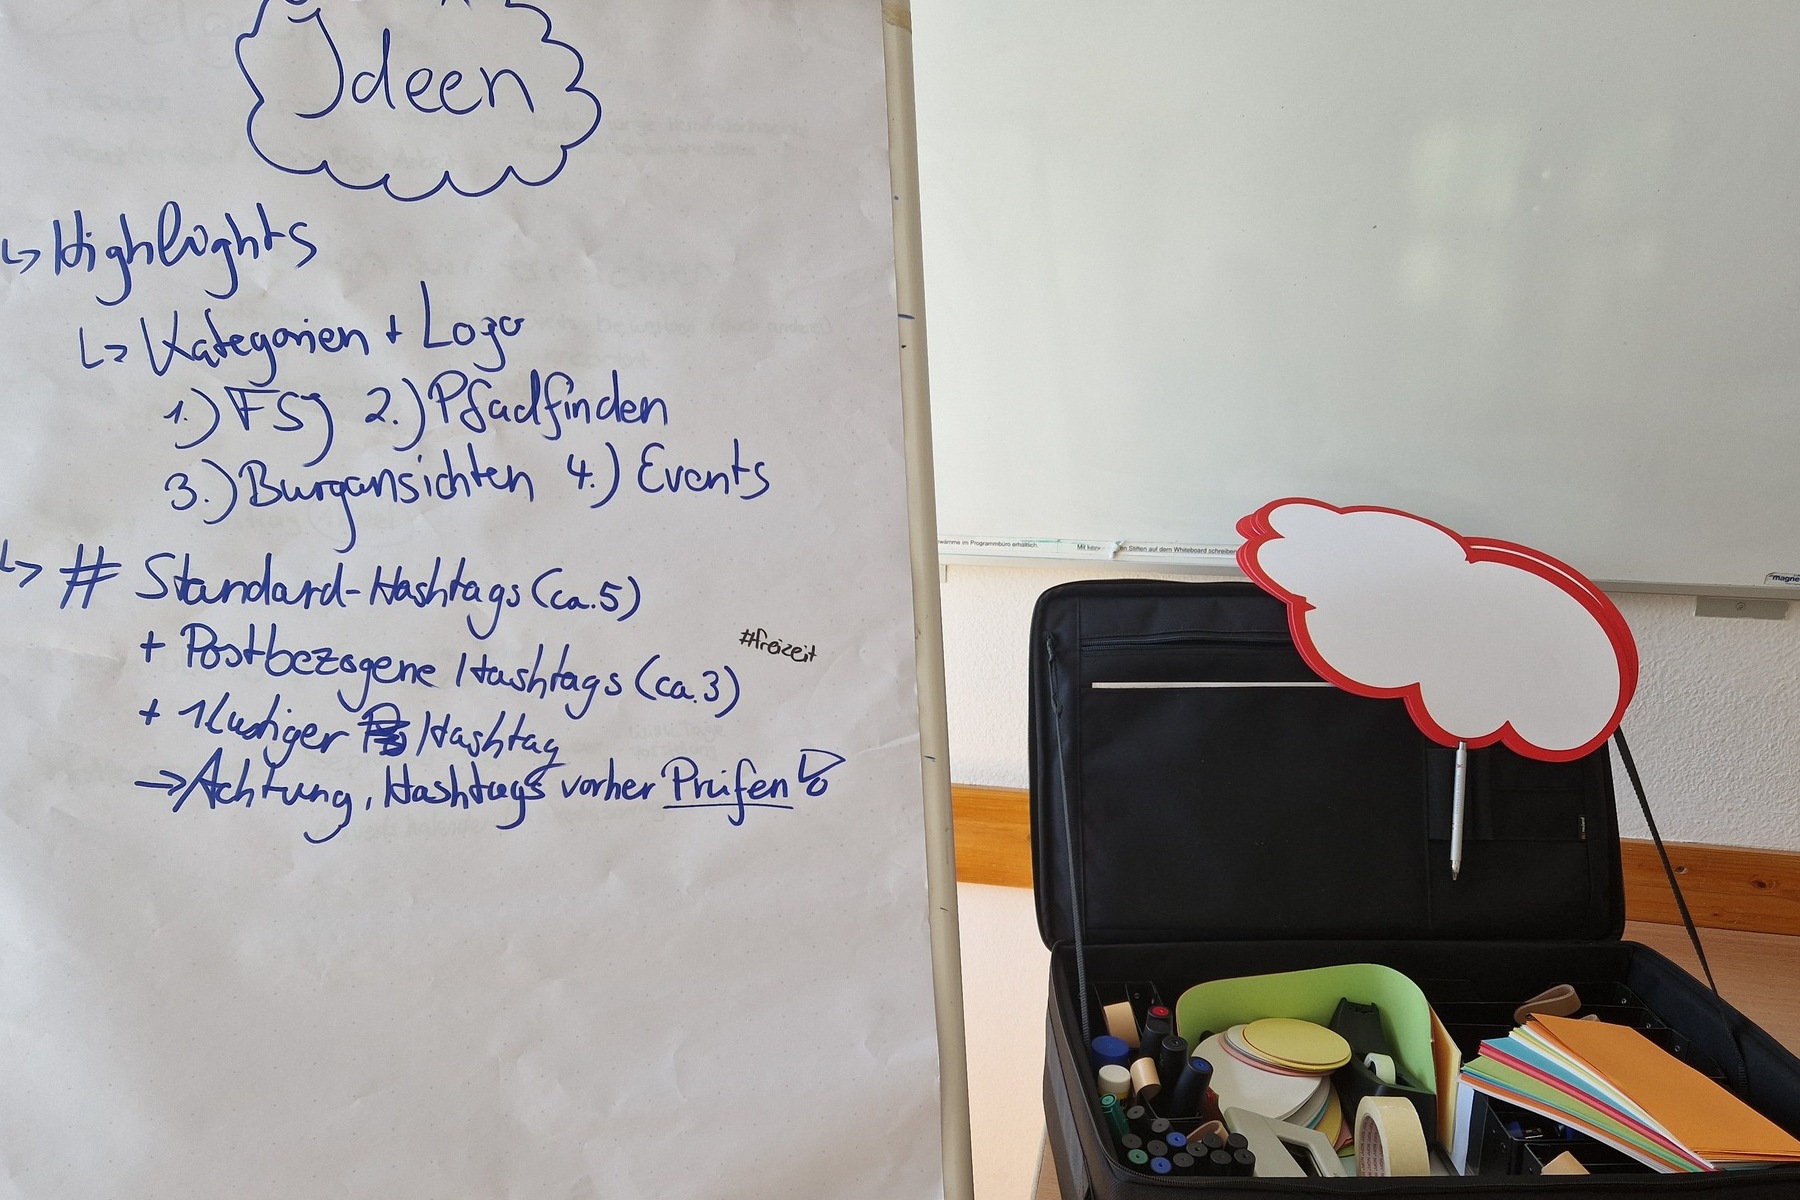 Ideen
↳ Highlights
↳ Kategorien + Logo
1.) FSJ 2.) Pfadfinden
3.) Burgansichten 4.) Events
↳ # Standard-Hashtags (ca. 5)
#freizeit
+ Postbezogene Hashtags (ca. 3)
+ 1 Lustiger Hashtag
→ Achtung, Hashtags vorher Prüfen!
wärme im Programmbüro erhältlich.
Stiften auf dem Whiteboard schreiben
magne